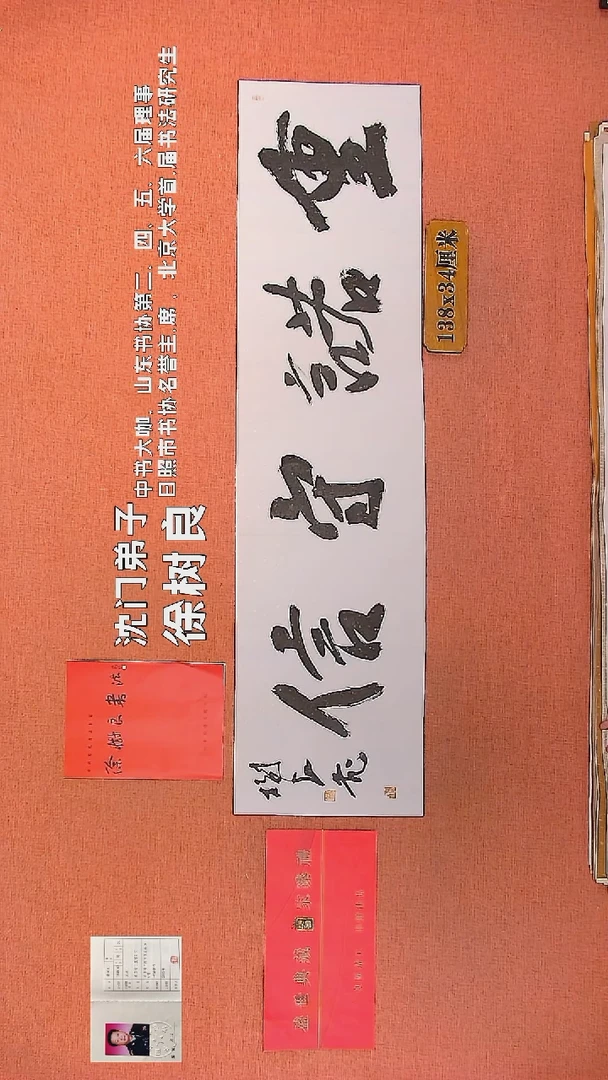 沈门弟子
徐树良
中书大咖、山东书协第二、四、五、六届理事
日照市书协名誉主席、北京大学首届书法研究生
徐樹良書法
重諾守信
樹良書
138x34厘米
盛世典藏